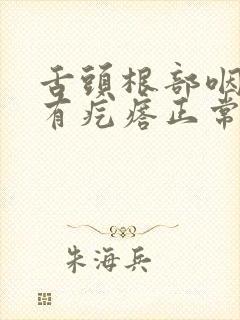 舌頭根部咽
有疙瘩正常
朱海兵